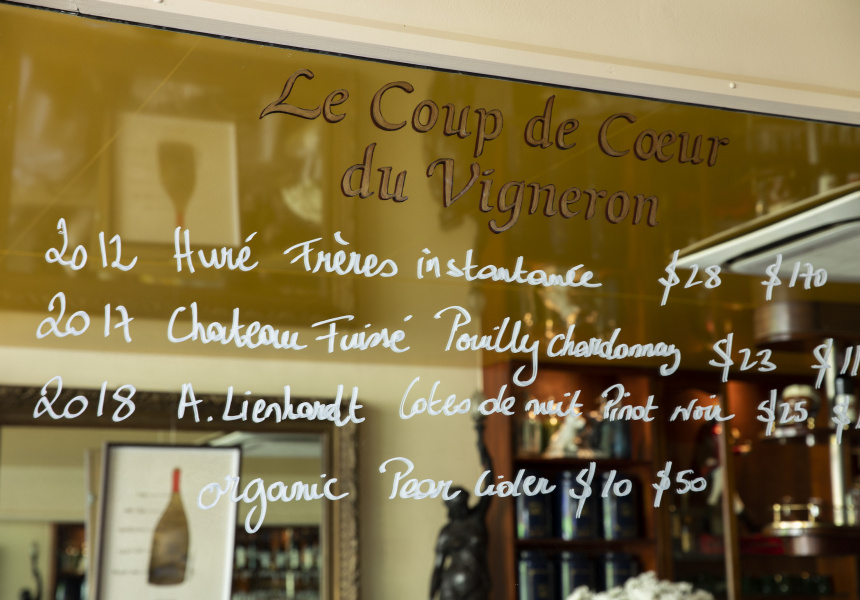 Le Coup de Cœur
du Vigneron
2012 Huré Frères instantanée $28 $170
2017 Chateau Fuissé Pouilly chardonnay $23
2018 A. Lienhardt Cotes de nuit Pinot noir $25
organic Pear Cider $10 $50